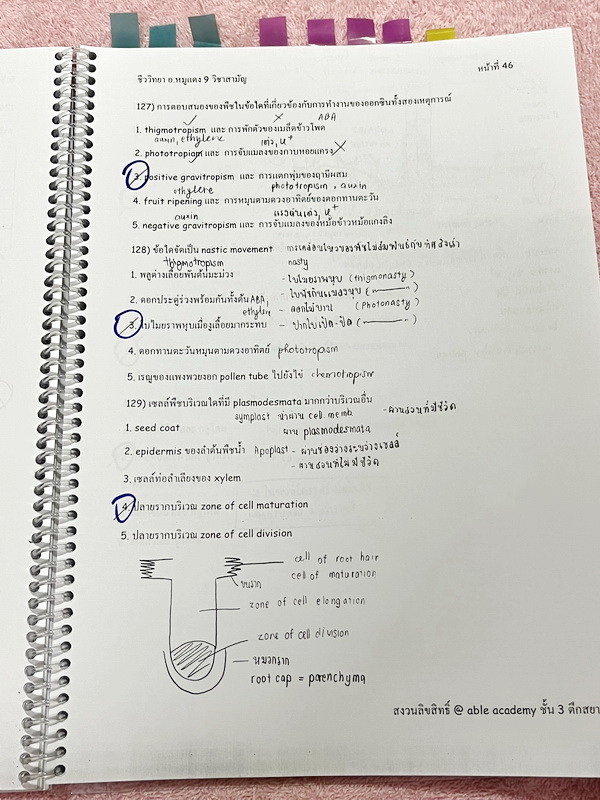 ชีววิทยา อ.หมูแดง 9 วิชาสามัญ
หน้าที่ 46
127) การตอบสนองของพืชในข้อใดที่เกี่ยวข้องกับการทำงานของออกซินทั้งสองเหตุการณ์
ABA
1. thigmotropism และ การพักตัวของเมล็ดข้าวโพด
auxin, ethylene
2. phototropism และ การจับแมลงของกาบหอยแครง
3. positive gravitropism และ การแตกพุ่มของฤๅษีผสม
ethylene phototropism , auxin
4. fruit ripening และ การหมุนตามดวงอาทิตย์ของดอกทานตะวัน
auxin
5. negative gravitropism และ การจับแมลงของหม้อข้าวหม้อแกงลิง
128) ข้อใดจัดเป็น nastic movement
thigmotropism nasty
1. พลูด่างเลื้อยพันต้นมะม่วง - ใบไมยราพหุบ (thigmonasty)
2. ดอกประดู่ร่วงพร้อมกันทั้งต้น ABA, ethylene
- ดอกไม้บาน (Photonasty)
3. ใบไมยราพหุบเมื่อเลื้อยมากระทบ - ปากใบเปิด-ปิด
4. ดอกทานตะวันหมุนตามดวงอาทิตย์ phototropism
5. เรณูของแพงพวยงอก pollen tube ไปยังไข่ chemotropism
129) เซลล์พืชบริเวณใดที่มี plasmodesmata มากกว่าบริเวณอื่น
symplast นำผ่าน cell memb. - ผ่านส่วนที่มีชีวิต
1. seed coat ผ่าน plasmodesmata
2. epidermis ของลำต้นพืชน้ำ Apoplast - ผ่านช่องว่างระหว่างเซลล์
- ผ่านส่วนที่ไม่มีชีวิต
3. เซลล์ท่อลำเลียงของ xylem
4. ปลายรากบริเวณ zone of cell maturation
5. ปลายรากบริเวณ zone of cell division
cell of root hair
cell of maturation
ขนราก
zone of cell elongation
zone of cell division
หมวกราก
root cap = parenchyma
สงวนลิขสิทธิ์ @ able academy ชั้น 3 ตึกสยา